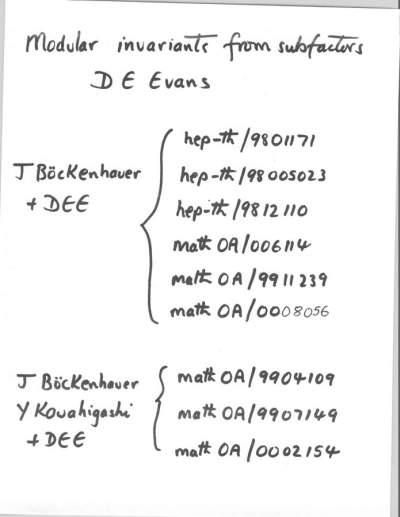 Modular invariants from subfactors
D E Evans
J Böckenhauer
+ DEE
hep-th/9801171
hep-th/98005023
hep-th/9812110
math OA/006114
math OA/9911239
math OA/0008056
J Böckenhauer
Y Kowahigashi
+ DEE
math OA/9904109
math OA/9907149
math OA/0002154